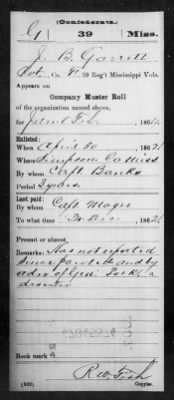 (Confederate.)
G 39 Miss.
J. B. Garrett
Co. 39 Reg't Mississippi Vols.
Appears on
Company Muster Roll
of the organization named above,
for Jan & Feb, 186
Enlisted:
When April 30, 186
Where Simpson Co Miss
By whom Capt. Banks
Period 3 years.
Last paid:
By whom Capt. Magee
To what time 186
Present or absent
Remarks: Has not reported
since paroled and by
order of Gen. Polk a
deserter
Book mark:
R W Fish
(642) Copyist.